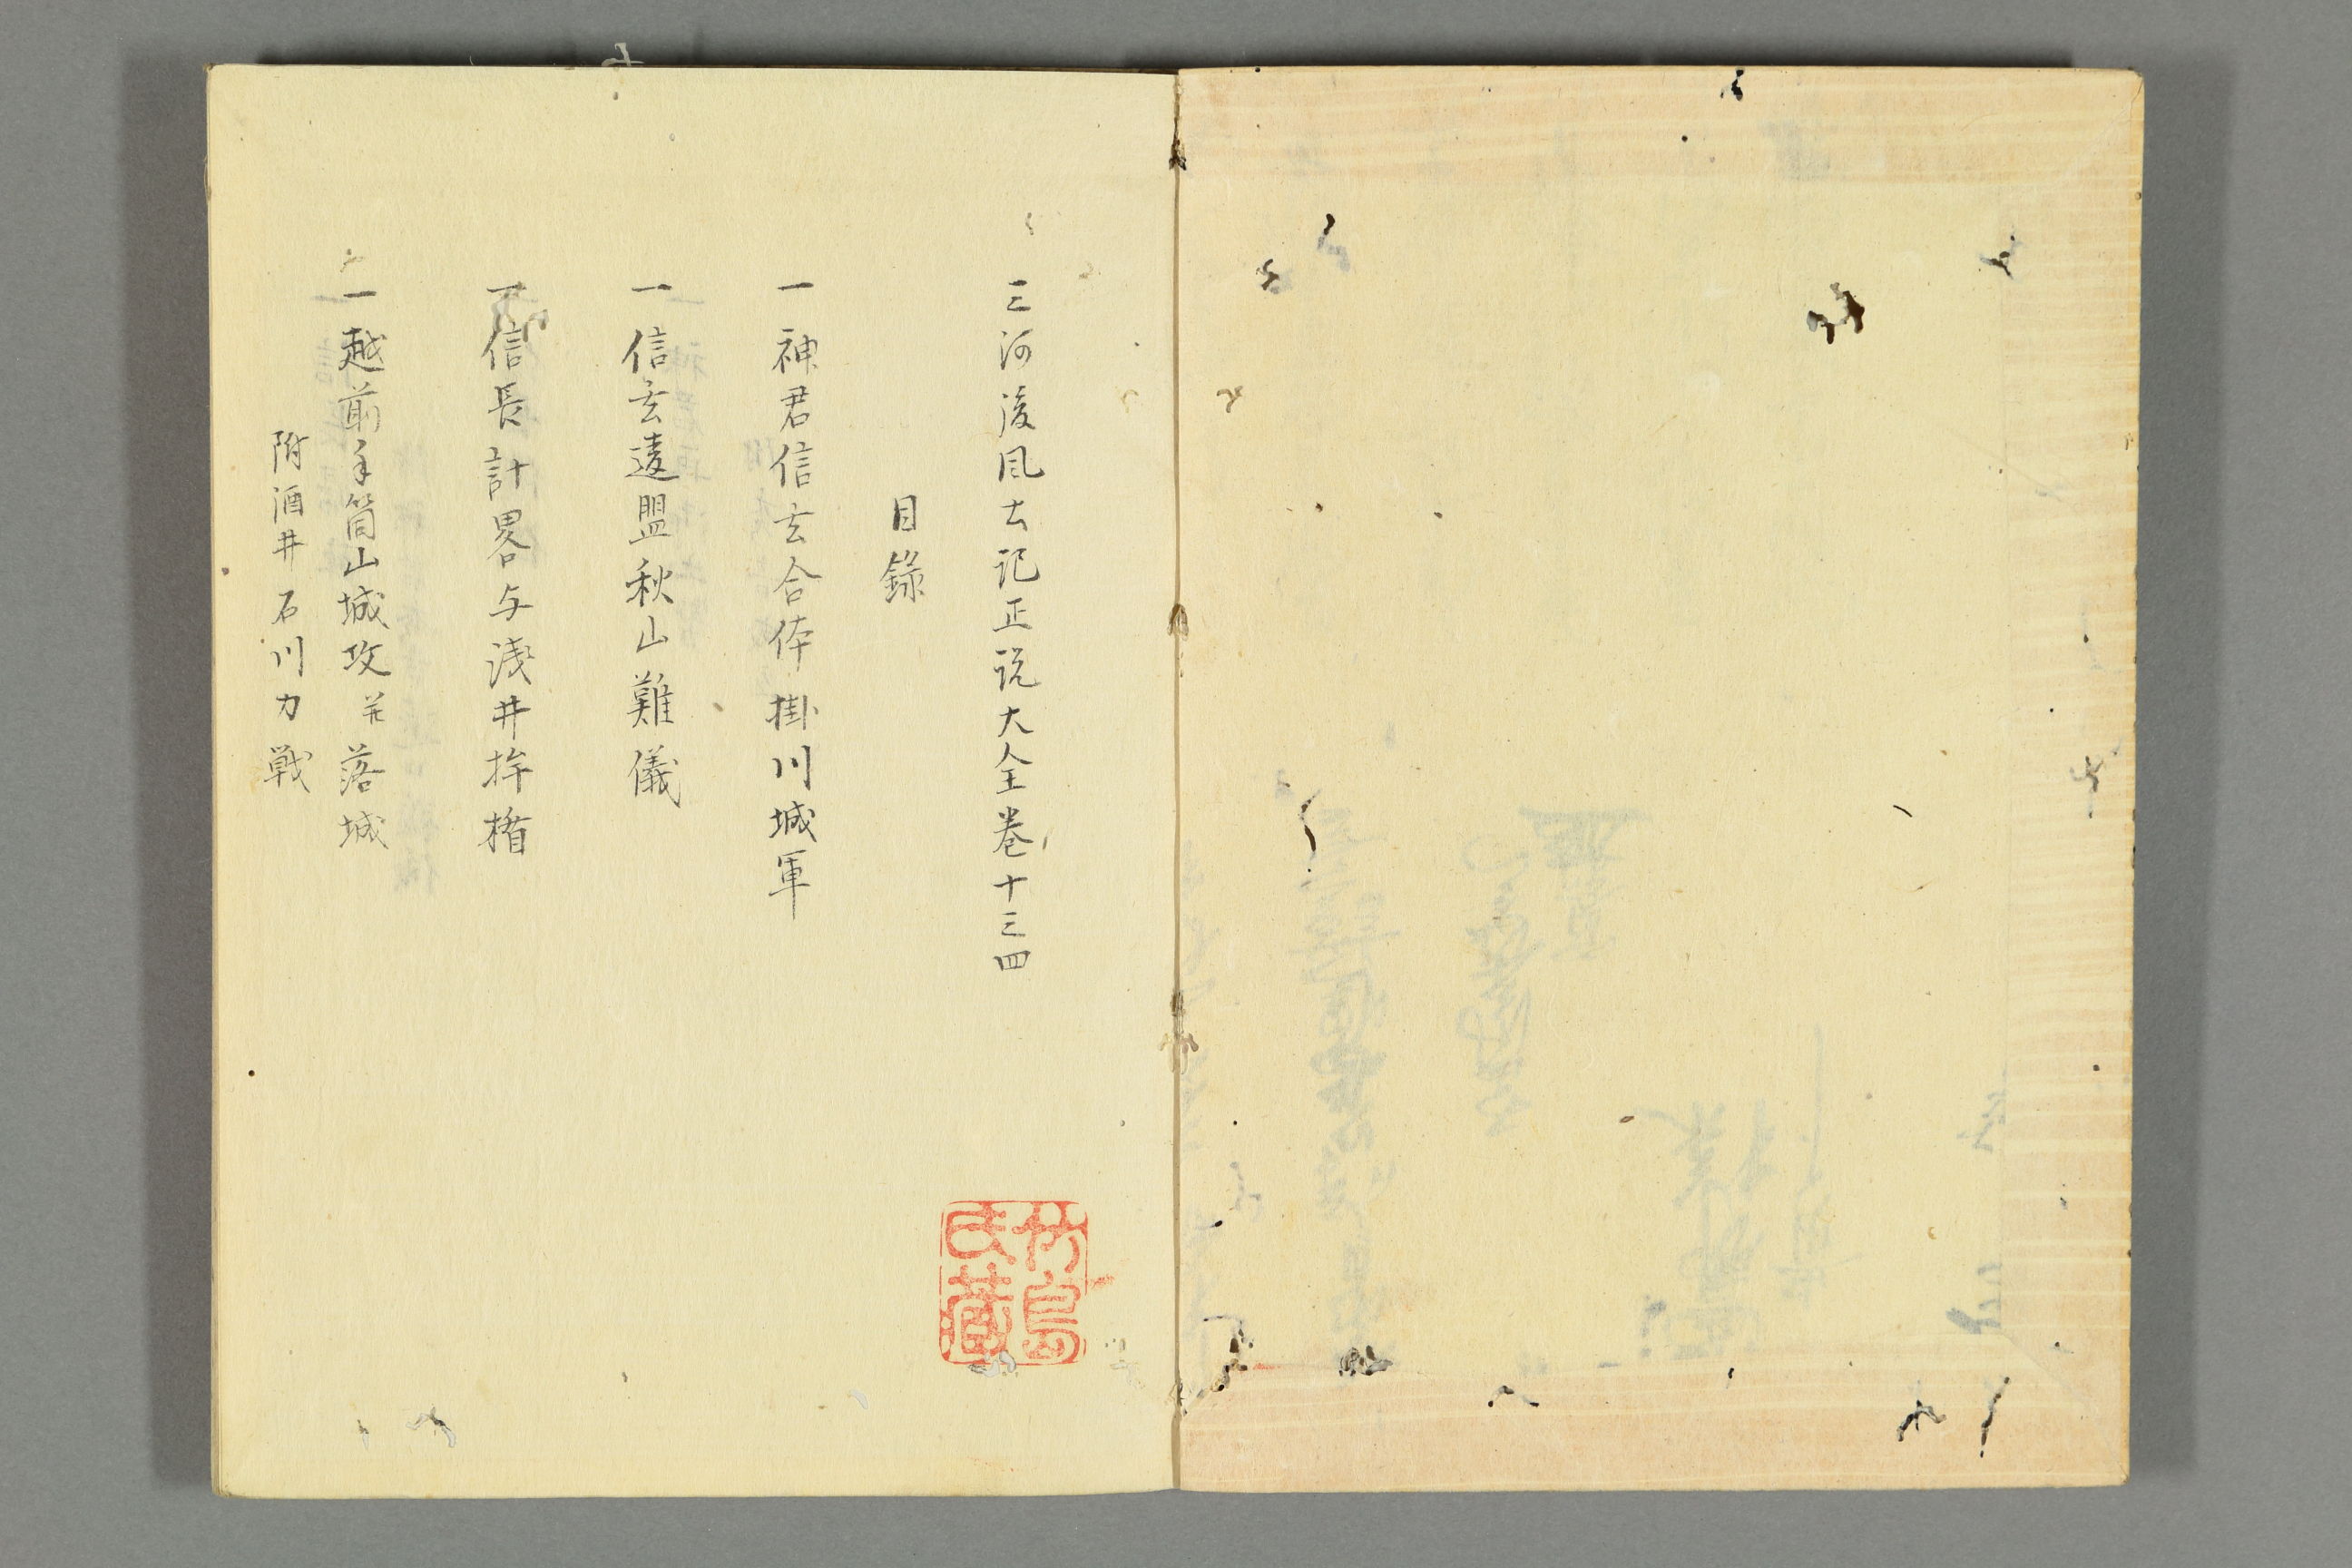 三河後風土記正説大全巻十三四
目錄
一神君信玄合体掛川城軍
一信玄違盟秋山難儀
一信長計畧与浅井拵楯
一越前手筒山城攻并落城
附酒井石川力戦
竹島
氏蔵